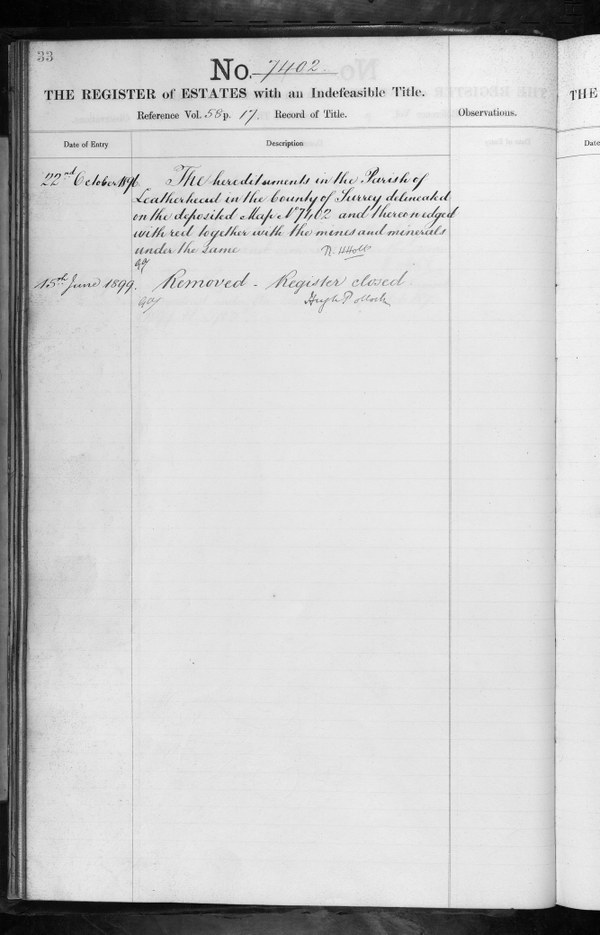 33
No. 7402.
THE REGISTER of ESTATES with an Indefeasible Title.
Reference Vol. 58 p. 17. Record of Title.
Observations.
Date of Entry
Description
22nd October 1896
The hereditaments in the Parish of
Leatherhead in the County of Surrey delineated
on the deposited Map No 7402 and thereon edged
with red together with the mines and minerals
under the same
15th June 1899.
Removed - Register closed
Hugh Pollock
THE
Date